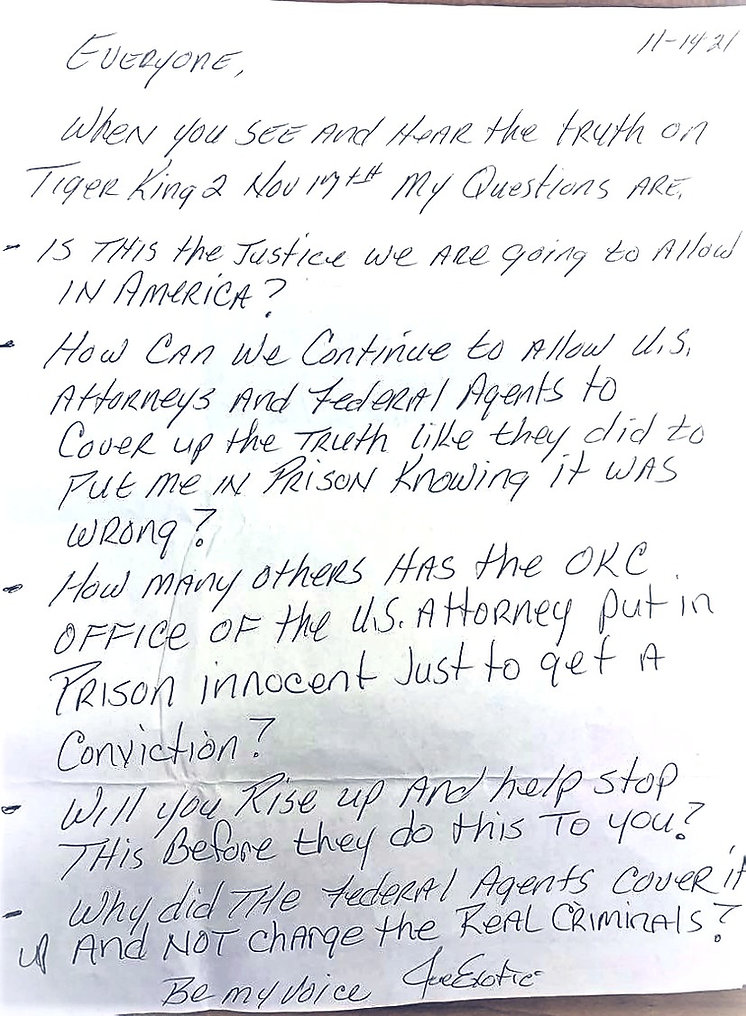 11-14 21
Everyone,
When you see and hear the truth on
Tiger King 2 Nov 17th My Questions are.
- Is this the Justice we are going to allow
in America?
- How can we continue to allow U.S.
Attorneys and Federal Agents to
cover up the truth like they did to
put me in prison knowing it was
wrong?
- How many others has the OKC
office of the U.S. Attorney put in
prison innocent just to get a
conviction?
- Will you rise up and help stop
this before they do this to you?
- Why did the Federal Agents cover it
up and not charge the real criminals?
Be my voice Joe Exotic